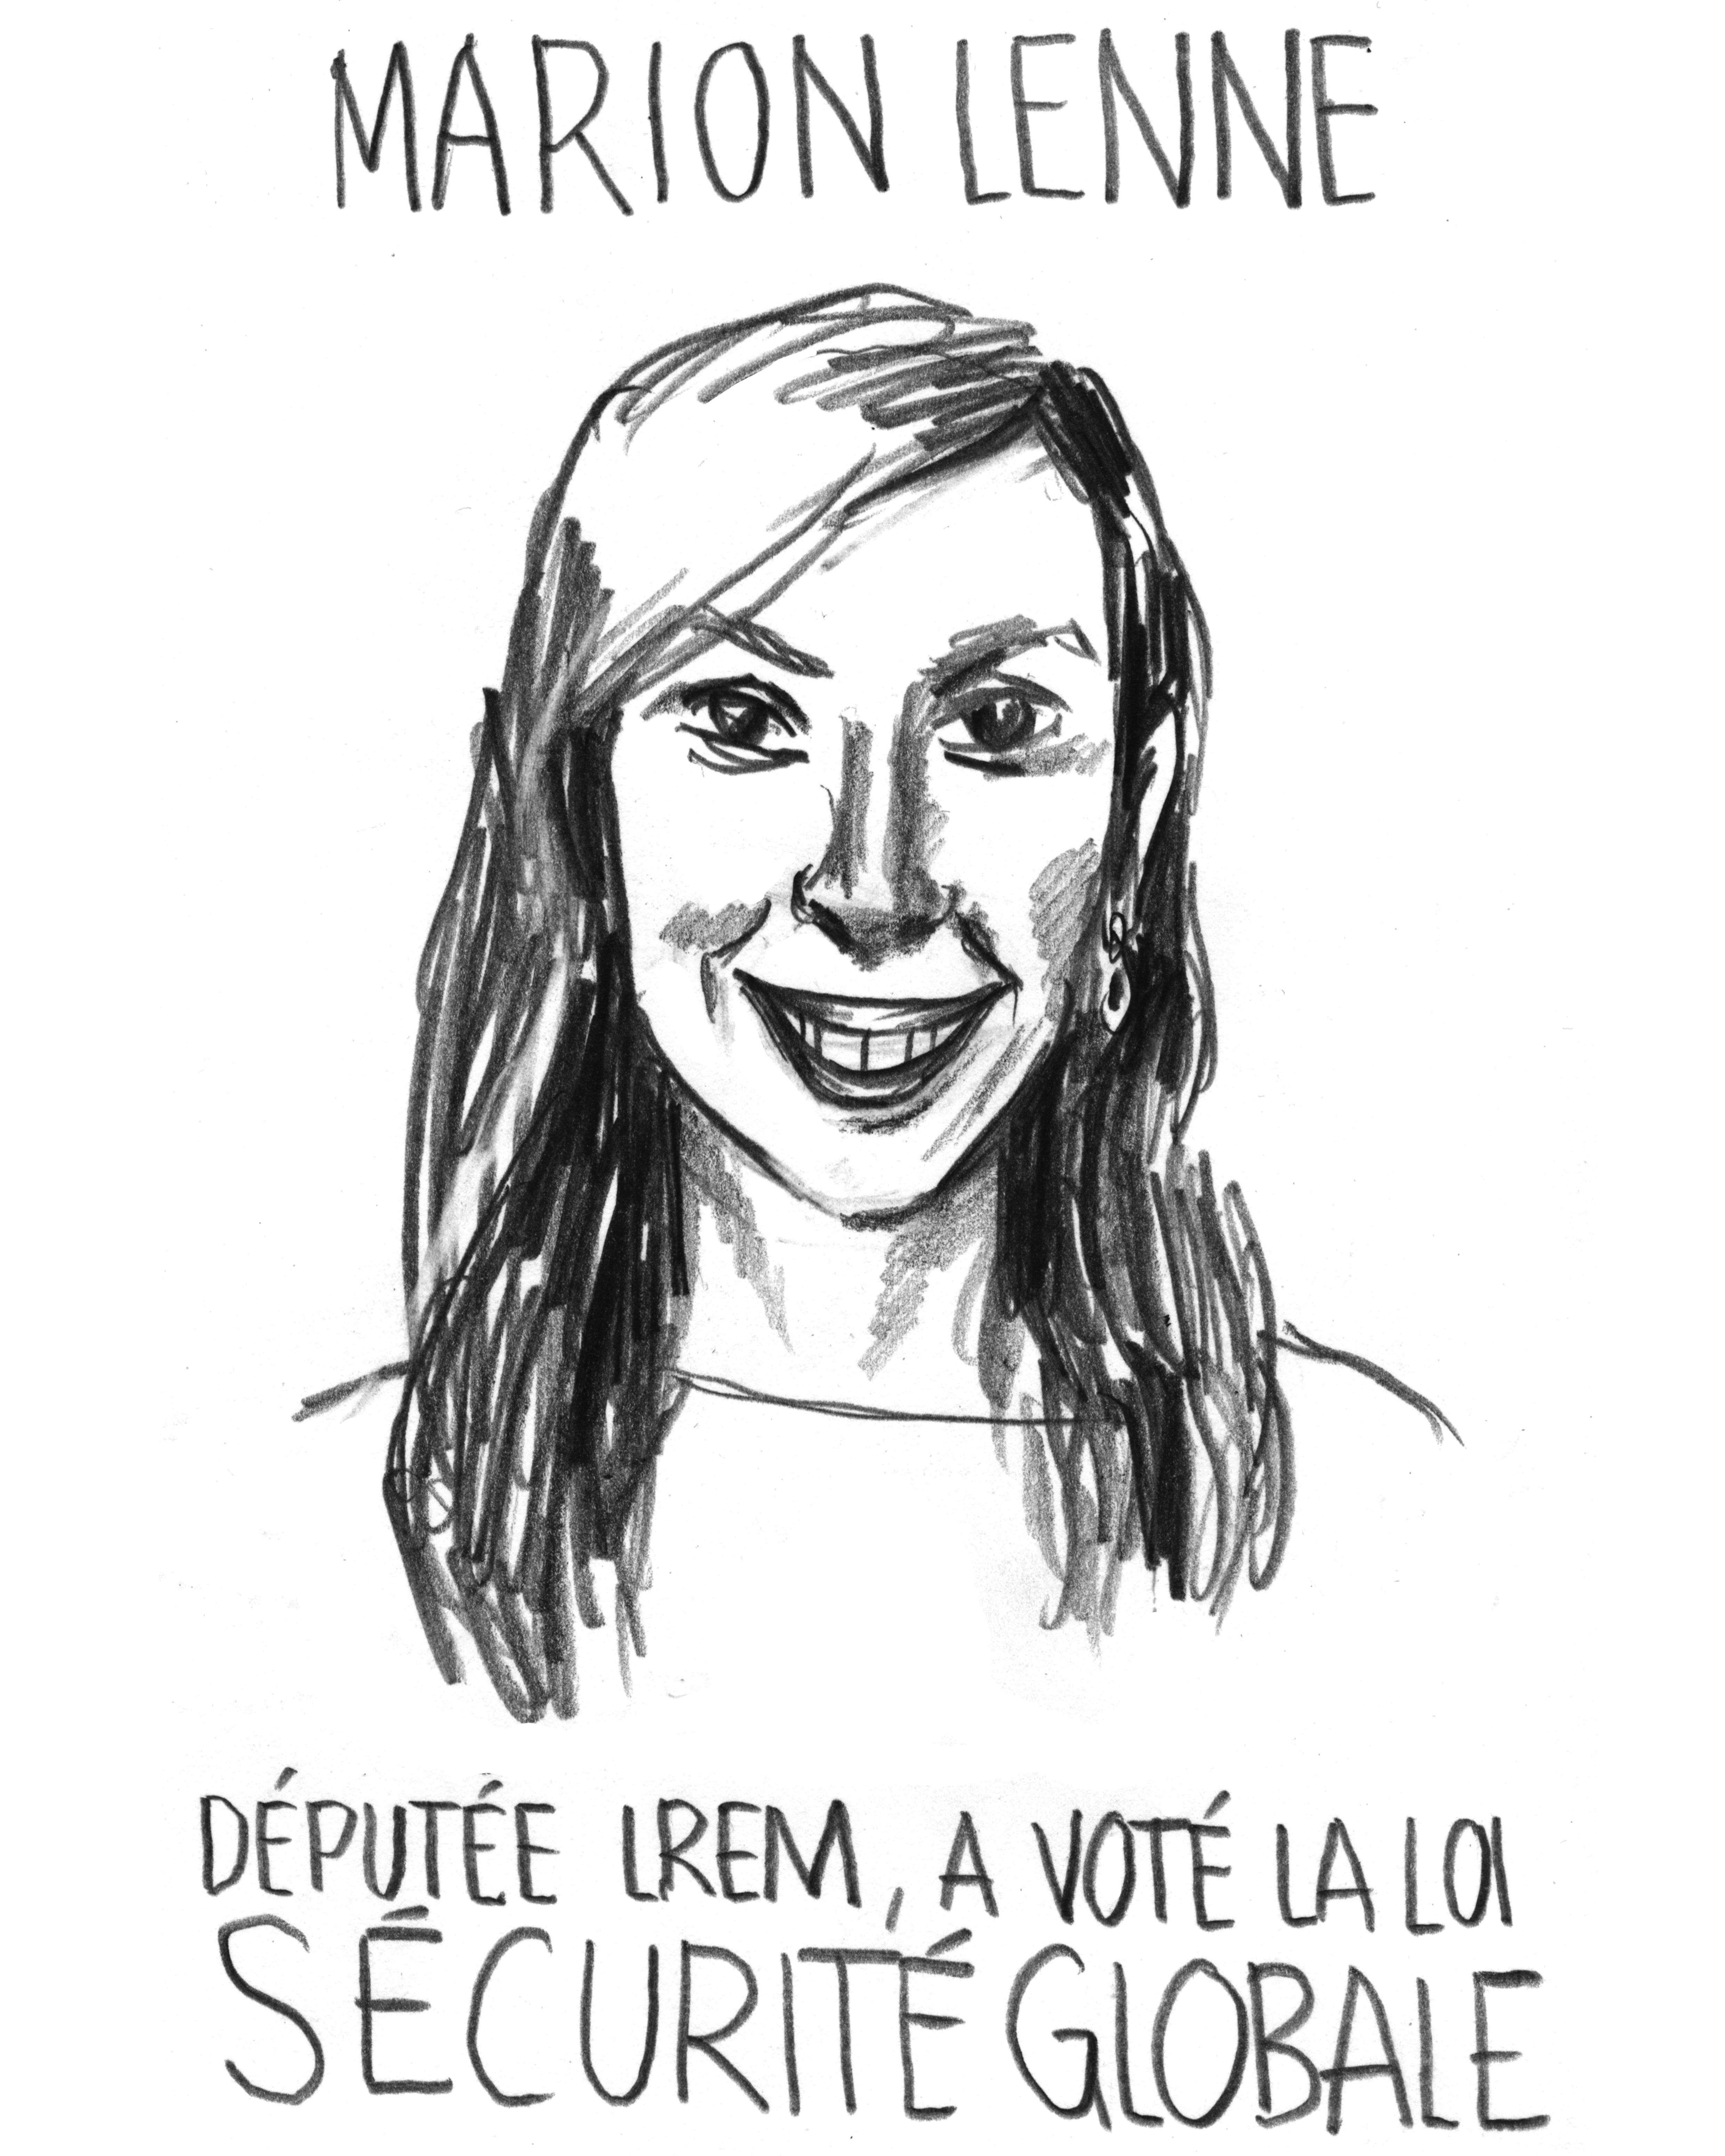 MARION LENNE
DÉPUTÉE LREM, A VOTÉ LA LOI
SÉCURITÉ GLOBALE